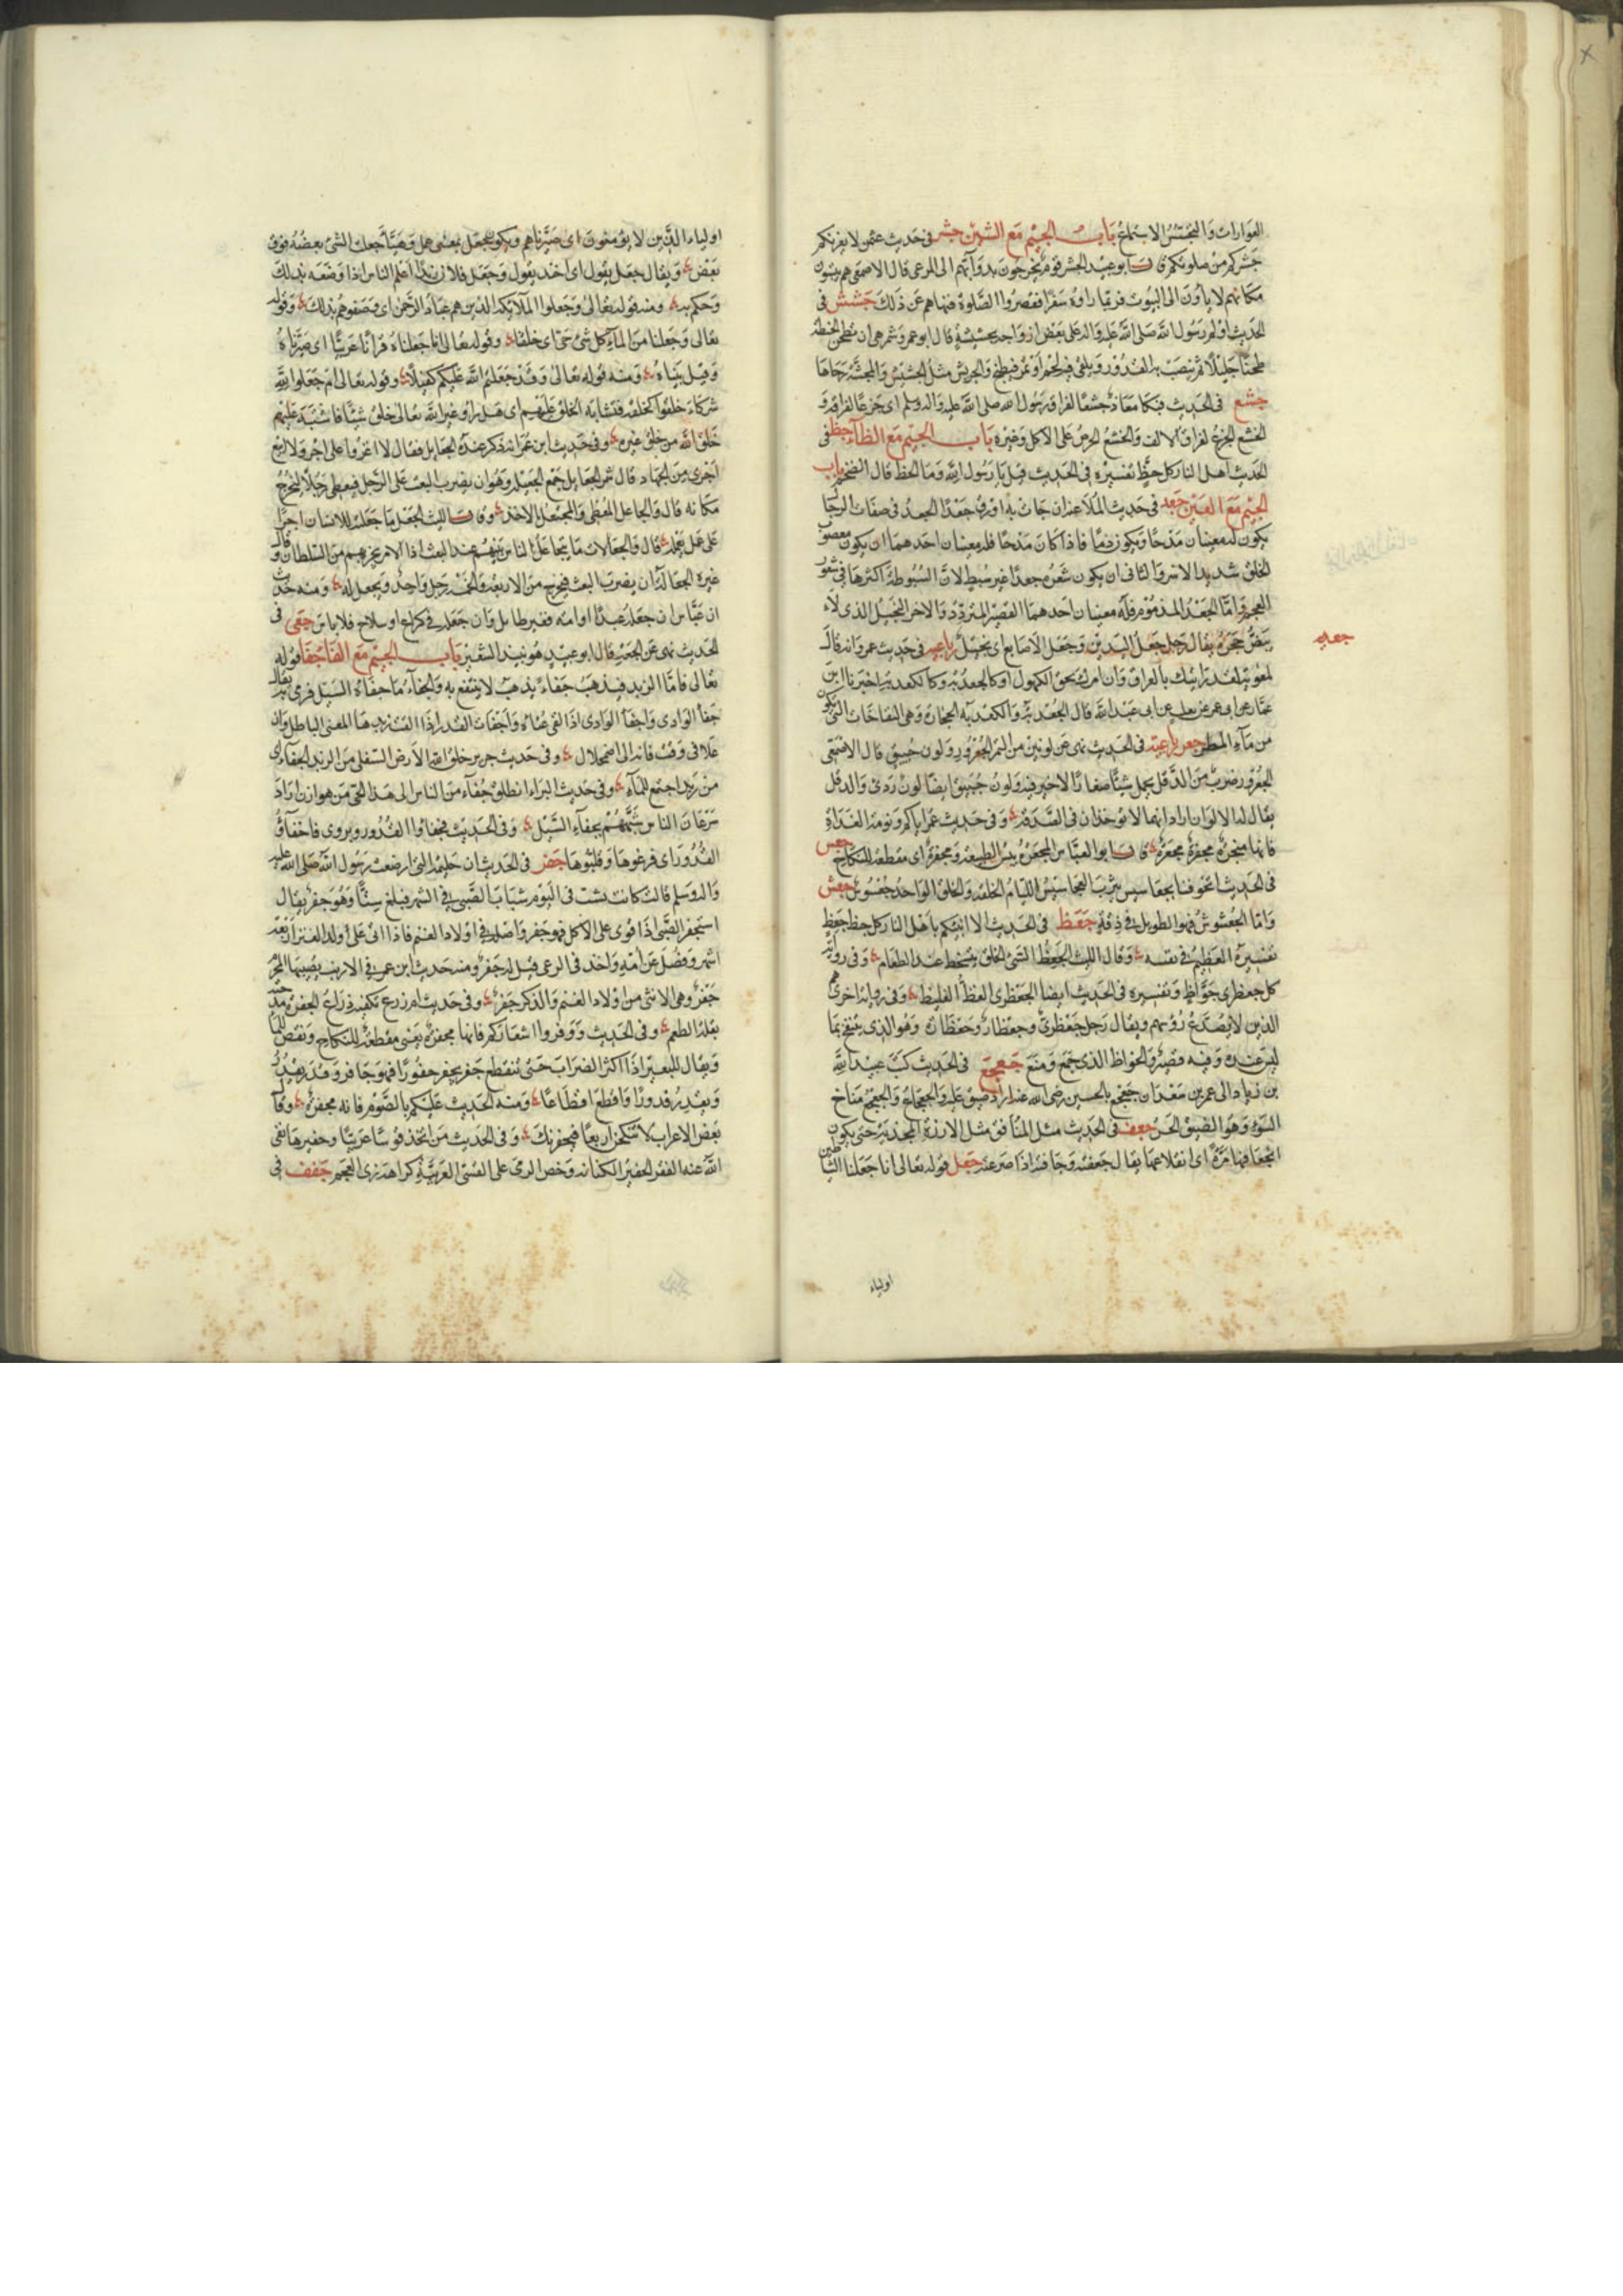 العورات والتجسس الاستماع باب الجيم مع الشين جشر فى حديث عثمن لا يغرنكم
جشركم من صلوتكم قال ابو عبيد الجشر قوم يخرجون بدوابهم الى المرعى قال الاصمعى هم يبيتون
مكانهم لا ياوون الى البيوت فربما راوه سفرا فقصروا الصلوة فنهاهم عن ذلك جشش فى
الحديث اولم رسول الله صلى الله عليه واله على بعض ازواجه بجشيشة قال ابو عمر وشمر هى ان تطحن الحنطة
طحنا جليلا ثم ينصب به القدور ويلقى فيه لحم او تمر فيطبخ والجريش مثل الجشيش والمجشة رحاها
جشع فى الحديث فبكا معاذ جشعا لفراق رسول الله صلى الله عليه واله وسلم اى جزعا لفراقه و
الجشع الجزع لفراق الالف والجشع الحرص على الاكل وغيره باب الجيم مع الظاء جظ فى
الحديث اهل النار كل جظ تفسيره فى الحديث قيل يا رسول الله وما الجظ قال الضخم باب
الجيم مع العين جعد فى حديث الملاعنة ان جات به اورق جعدا الجعد فى صفات الرجا
يكون له معنيان مدحا ويكون ذما فاذا كان مدحا فله معنيان احدهما ان يكون معصوب
الخلق شديد الاسر والثانى ان يكون شعره جعدا غير سبط لان السبوطة اكثرها فى شعور
العجم واما الجعد المذموم فله معنيان احدهما القصير المتردد والاخر البخيل الذى لا
يبض حجره يقال رجل جعد اليدين وجعد الاصابع اى بخيل رباعيه فى حديث عمرو انه قال
جعدبه
لمعوية لقد رايتك بالعراق وان امرك كحق الكهول او كالجعدبة وكالكعدبة اخبرنا ابن
عمار عن ابى عمر عن ثعلب عن ابى عبد الله قال الجعدبة والكعدبة الحجاة وهى النفاخات التى تكون
من ماء المطر جعر رباعيته فى الحديث نهى عن لونين من التمر الجعرور ولون حبيق قال الاصمعى
الجعرور ضرب من الدقل يحمل شيئا صغارا لا خير فيه ولون حبيق ايضا لون ردى والدقل
يقال لها الالوان اراد انهما لا توخذان فى الصدقة وفى حديث عمر اياكم ونومة الغداة
فانها مبخرة مجفرة مجعرة قال ابو العباس المجعرة يبس الطبيعة ومجفرة اى مقطعة للنكاح جعس
فى الحديث اتخوفنا بجعاسيس يثرب الجعاسيس اللئام الخلقة والخلق الواحد جعسوس جعش
واما الجعشوش فهو الطويل فى دقة جعظ فى الحديث الا انبئكم باهل النار كل جظ جعظ
تفسيره العظيم فى نفسه وقال الليث الجعظ السئ الخلق يتسخط عند الطعام وفى رواية
كل جعظرى جواظ وتفسيره فى الحديث ايضا الجعظرى الفظ الغليظ وفى رواية اخرى هم
الذين لا يصدع رؤسهم ويقال رجل جعظرى وجعظار وجعظان وهو الذى ينتفخ بما
ليس عنده وفيه قصر والجواظ الذى جمع ومنع جعجع فى الحديث كتب عبيد الله
بن زياد الى عمر بن سعد ان جعجع بالحسين رضى الله عنه اراد ضيق عليه والجعجاع والجعجع مناخ
السوء وهو الضيق الخشن جعف فى الحديث مثل المنافق مثل الارزة المجذية حتى يكون
انجعافها مرة اى انقلاعها يقال جعفته وجافته اذا صرعته جعل قوله تعالى انا جعلنا الشياطين
اولياء
اولياء الذين لا يؤمنون اى صيرناهم ويكون جعل بمعنى عمل وهيا جعلت الشئ بعضه فوق
بعض ويقال جعل يقول اى اخذ يقول وجعل فلان زيدا اعلم الناس اذا وصفه بذلك
وحكم به ومنه قوله تعالى وجعلوا الملائكة الذين هم عباد الرحمن اى وصفوهم بذلك وقوله
تعالى وجعلنا من الماء كل شئ حى اى خلقنا وقوله تعالى انا جعلناه قرانا عربيا اى صيرناه
وقيل بيناه ومنه قوله تعالى وقد جعلتم الله عليكم كفيلا وقوله تعالى ام جعلوا لله
شركاء خلقوا كخلقه فتشابه الخلق عليهم اى هل راوا غير الله تعالى خلق شيئا فاشتبه عليهم
خلق الله من خلق غيره وفى حديث ابن عمر انه ذكر عنده الجعايل فقال لا اغزوا على اجر ولا ابيع
اجرى من الجهاد قال شمر الجعايل جمع الجعيلة وهو ان يضرب البعث على الرجل فيعطى رجلا ليخرج
مكانه قال والجاعل المعطى والمجتعل الاخذ وقال الليث الجعل ما جعلته للانسان اجرا
على عمل يعمله قال والجعالات ما يتجاعل الناس بينهم عند البعث اذا الامر يحزبهم من السلطان وقال
غيره الجعالة ان يضرب البعث فيخرج من الاربعة والخمسة رجل واحد ويجعل له ومنه حديث
ابن عباس ان جعله عبدا او امة فغير طائل وان جعله فى كراع او سلاح فلا باس جعى فى
الحديث نهى عن الجعة قال ابو عبيد هو نبيذ الشعير باب الجيم مع الفاء جفا قوله
تعالى فاما الزبد فيذهب جفاء يذهب لا ينتفع به والجفاء ما جفاه السيل فرمى به يقال
جفا الوادى واجفا الوادى اذا القى غثاه واجفات القدر اذا القت زبدها المعنى الباطل وان
علا فى وقت فانه الى اضمحلال وفى حديث جرير خلق الله الارض السفلى من الزبد الجفاء اى
من زبد اجتمع للماء وفى حديث البراء انطلق جفاء من الناس الى هذا الحى من هوازن اراد
سرعان الناس شبههم بجفاء السيل وفى الحديث فجفاوا القدور ويروى فاجفاوا
القدور اى فرغوها وقلبوها جفر فى الحديث ان حليمة التى ارضعت رسول الله صلى الله عليه
واله وسلم قالت كانت يشب فى اليوم شباب الصبى فى الشهر فبلغ ستا وهو جفر يقال
استجفر الصبى اذا قوى على الاكل فهو جفر واصله فى اولاد الغنم فاذا اتى على اولد العنز اربعة
اشهر وفصل عن امه واخذ فى الرعى قيل له جفر ومنه حديث ابن عمر فى الارنب يصيبها المحرم
جفرة وهى الانثى من اولاد الغنم والذكر جفر وفى حديث ام زرع تكفيه ذراع الجفرة مدحته
بقلة الطعم وفى الحديث ووفروا اشعاركم فانها مجفرة يعنى مقطعة للنكاح ونقص للماء
ويقال للبعير اذا اكثر الضراب حتى ينقطع جفر يجفر جفورا فهو جافر وفدر يفدر
ويفدر فدورا واقطع اقطاعا ومنه الحديث عليكم بالصوم فانه مجفرة وقال
بعض الاعراب لا تنكحن اربعا فيجفرنك وفى الحديث من اتخذ قوسا عربيا وجفيرها نفى
الله عنه الفقر الجفير الكنانة وخص الرمى على القسى العربية كراهة زى العجم جفف فى